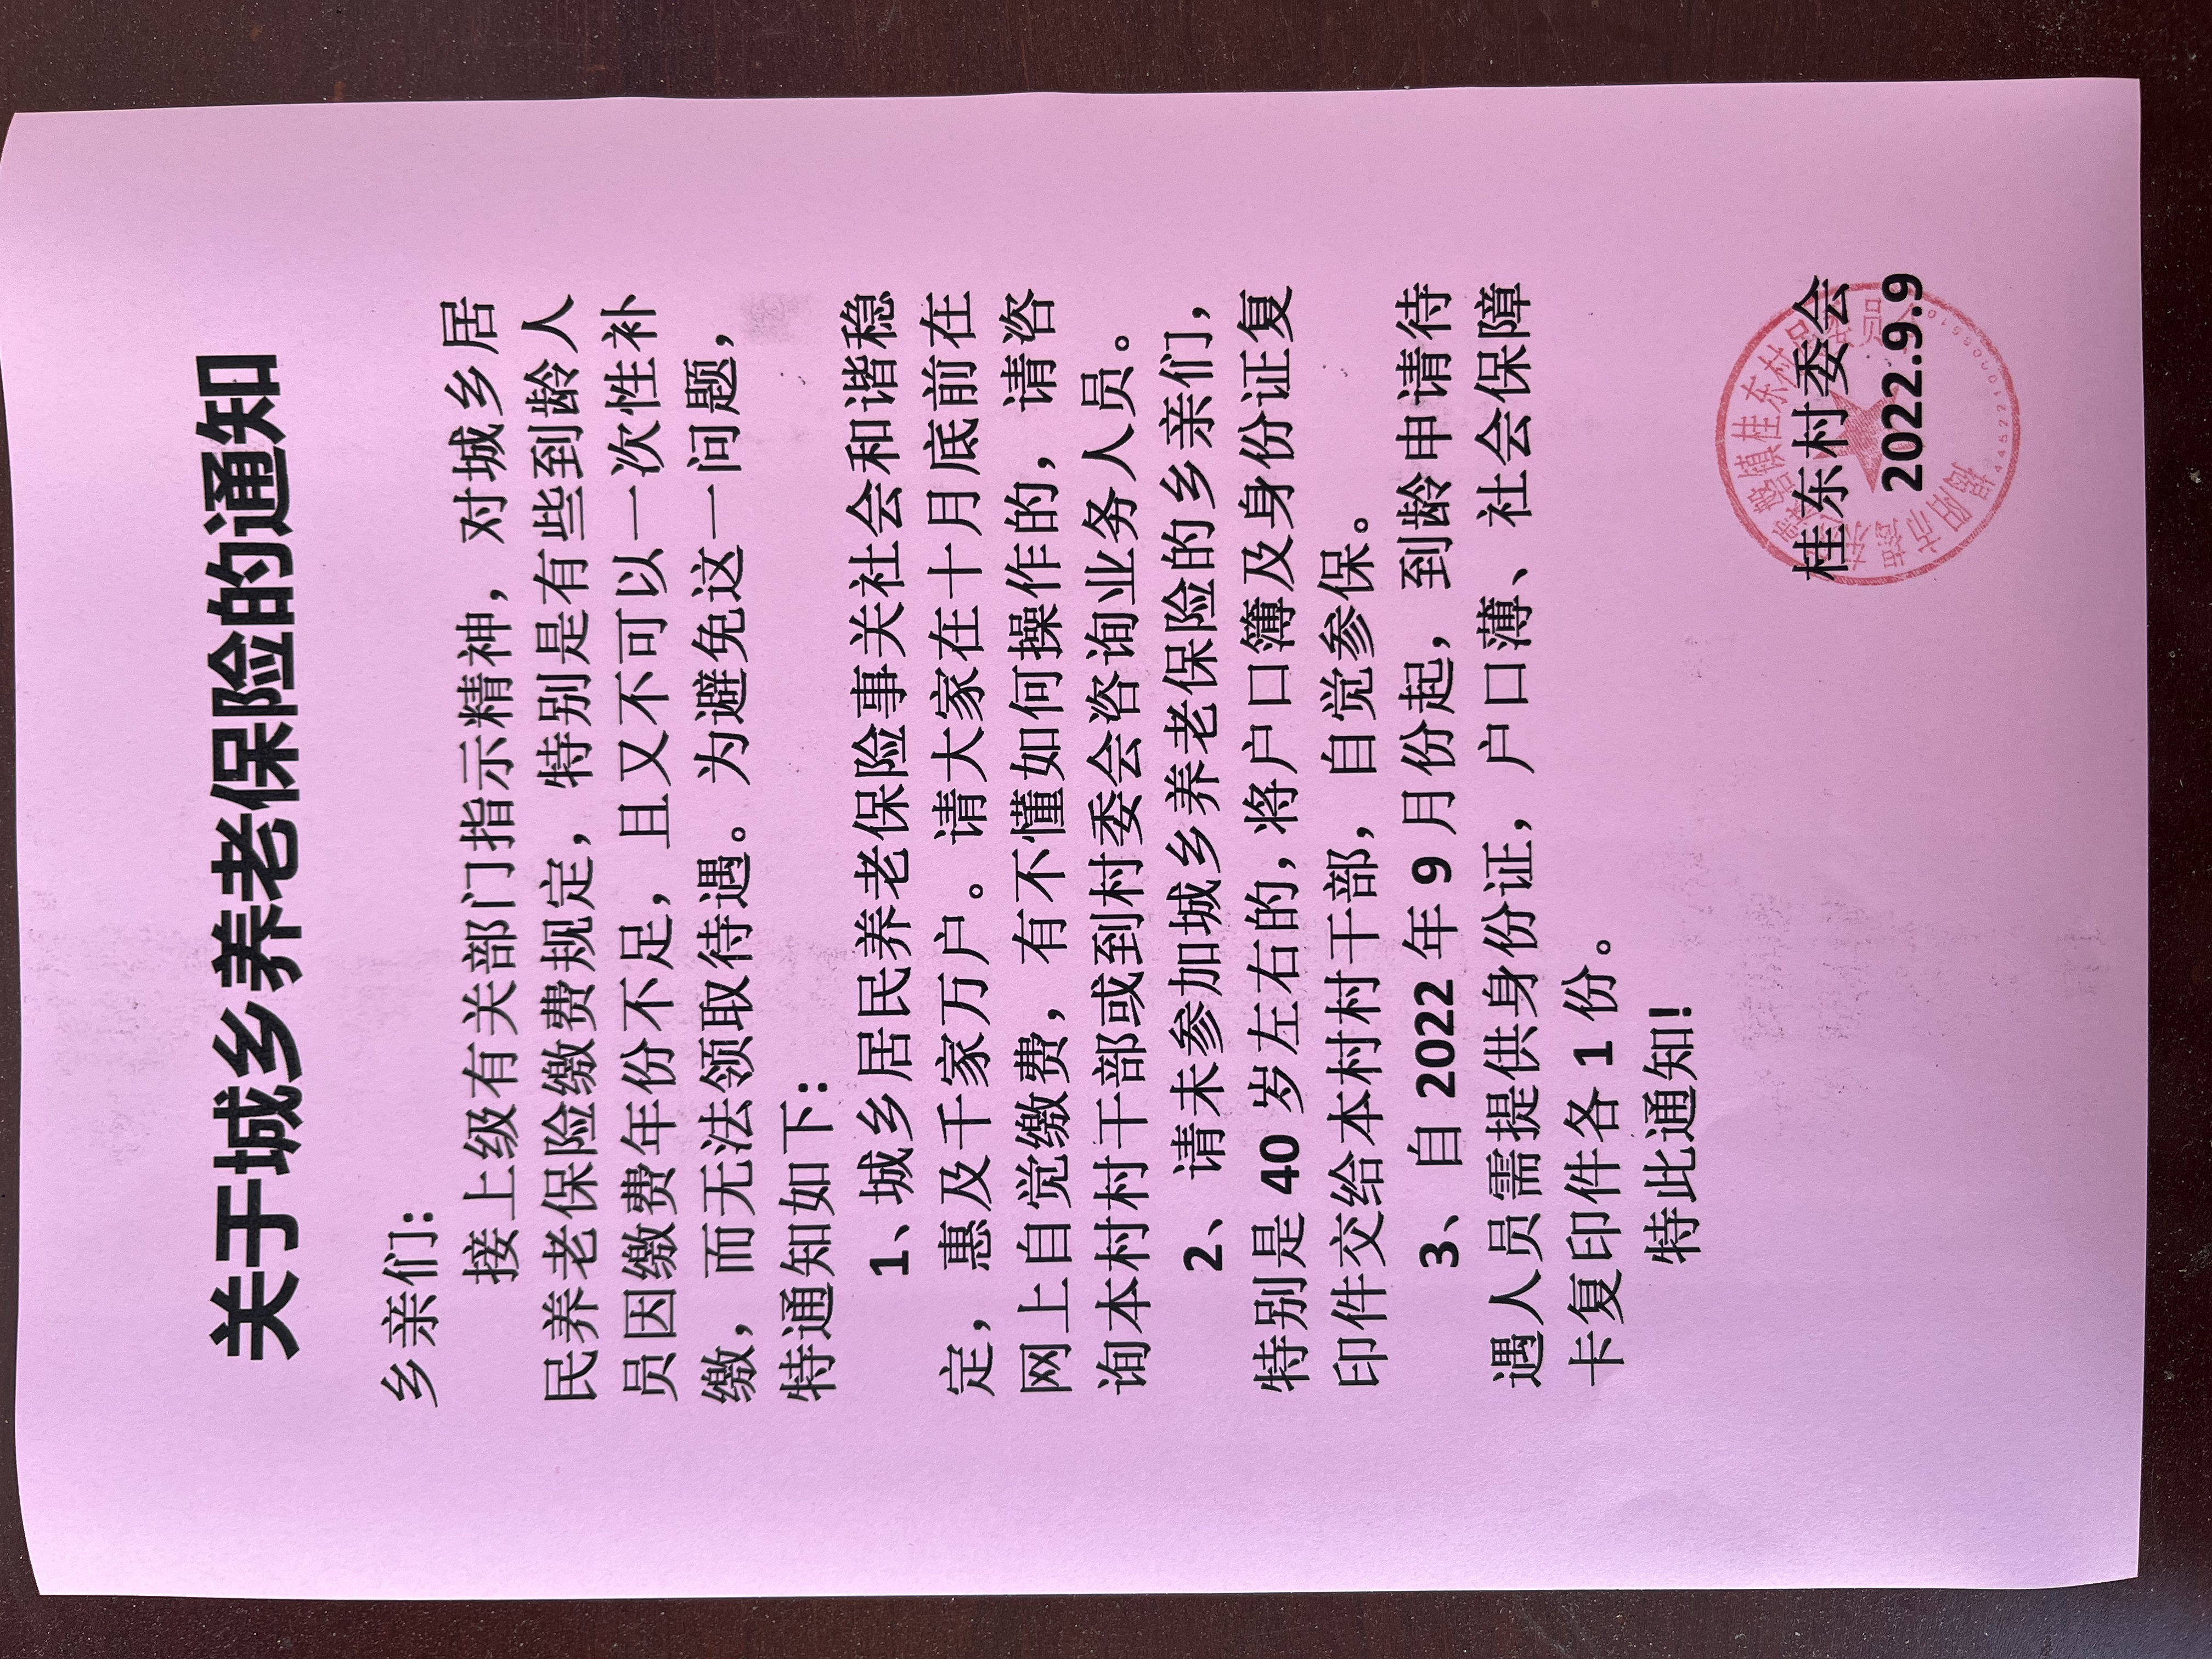 关于城乡养老保险的通知
乡亲们:
接上级有关部门指示精神，对城乡居
民养老保险缴费规定，特别是有些到龄人
员因缴费年份不足，且又不可以一次性补
缴，而无法领取待遇。为避免这一问题，
特通知如下:
1、城乡居民养老保险事关社会和谐稳
定，惠及千家万户。请大家在十月底前在
网上自觉缴费，有不懂如何操作的，请咨
询本村村干部或到村委会咨询业务人员。
2、请未参加城乡养老保险的乡亲们，
特别是 40 岁左右的，将户口簿及身份证复
印件交给本村村干部，自觉参保。
3、自 2022 年 9 月份起，到龄申请待
遇人员需提供身份证，户口薄、社会保障
卡复印件各 1 份。
特此通知!
桂东村委会
2022.9.9
揭阳市揭东
磐镇桂东村民委员会